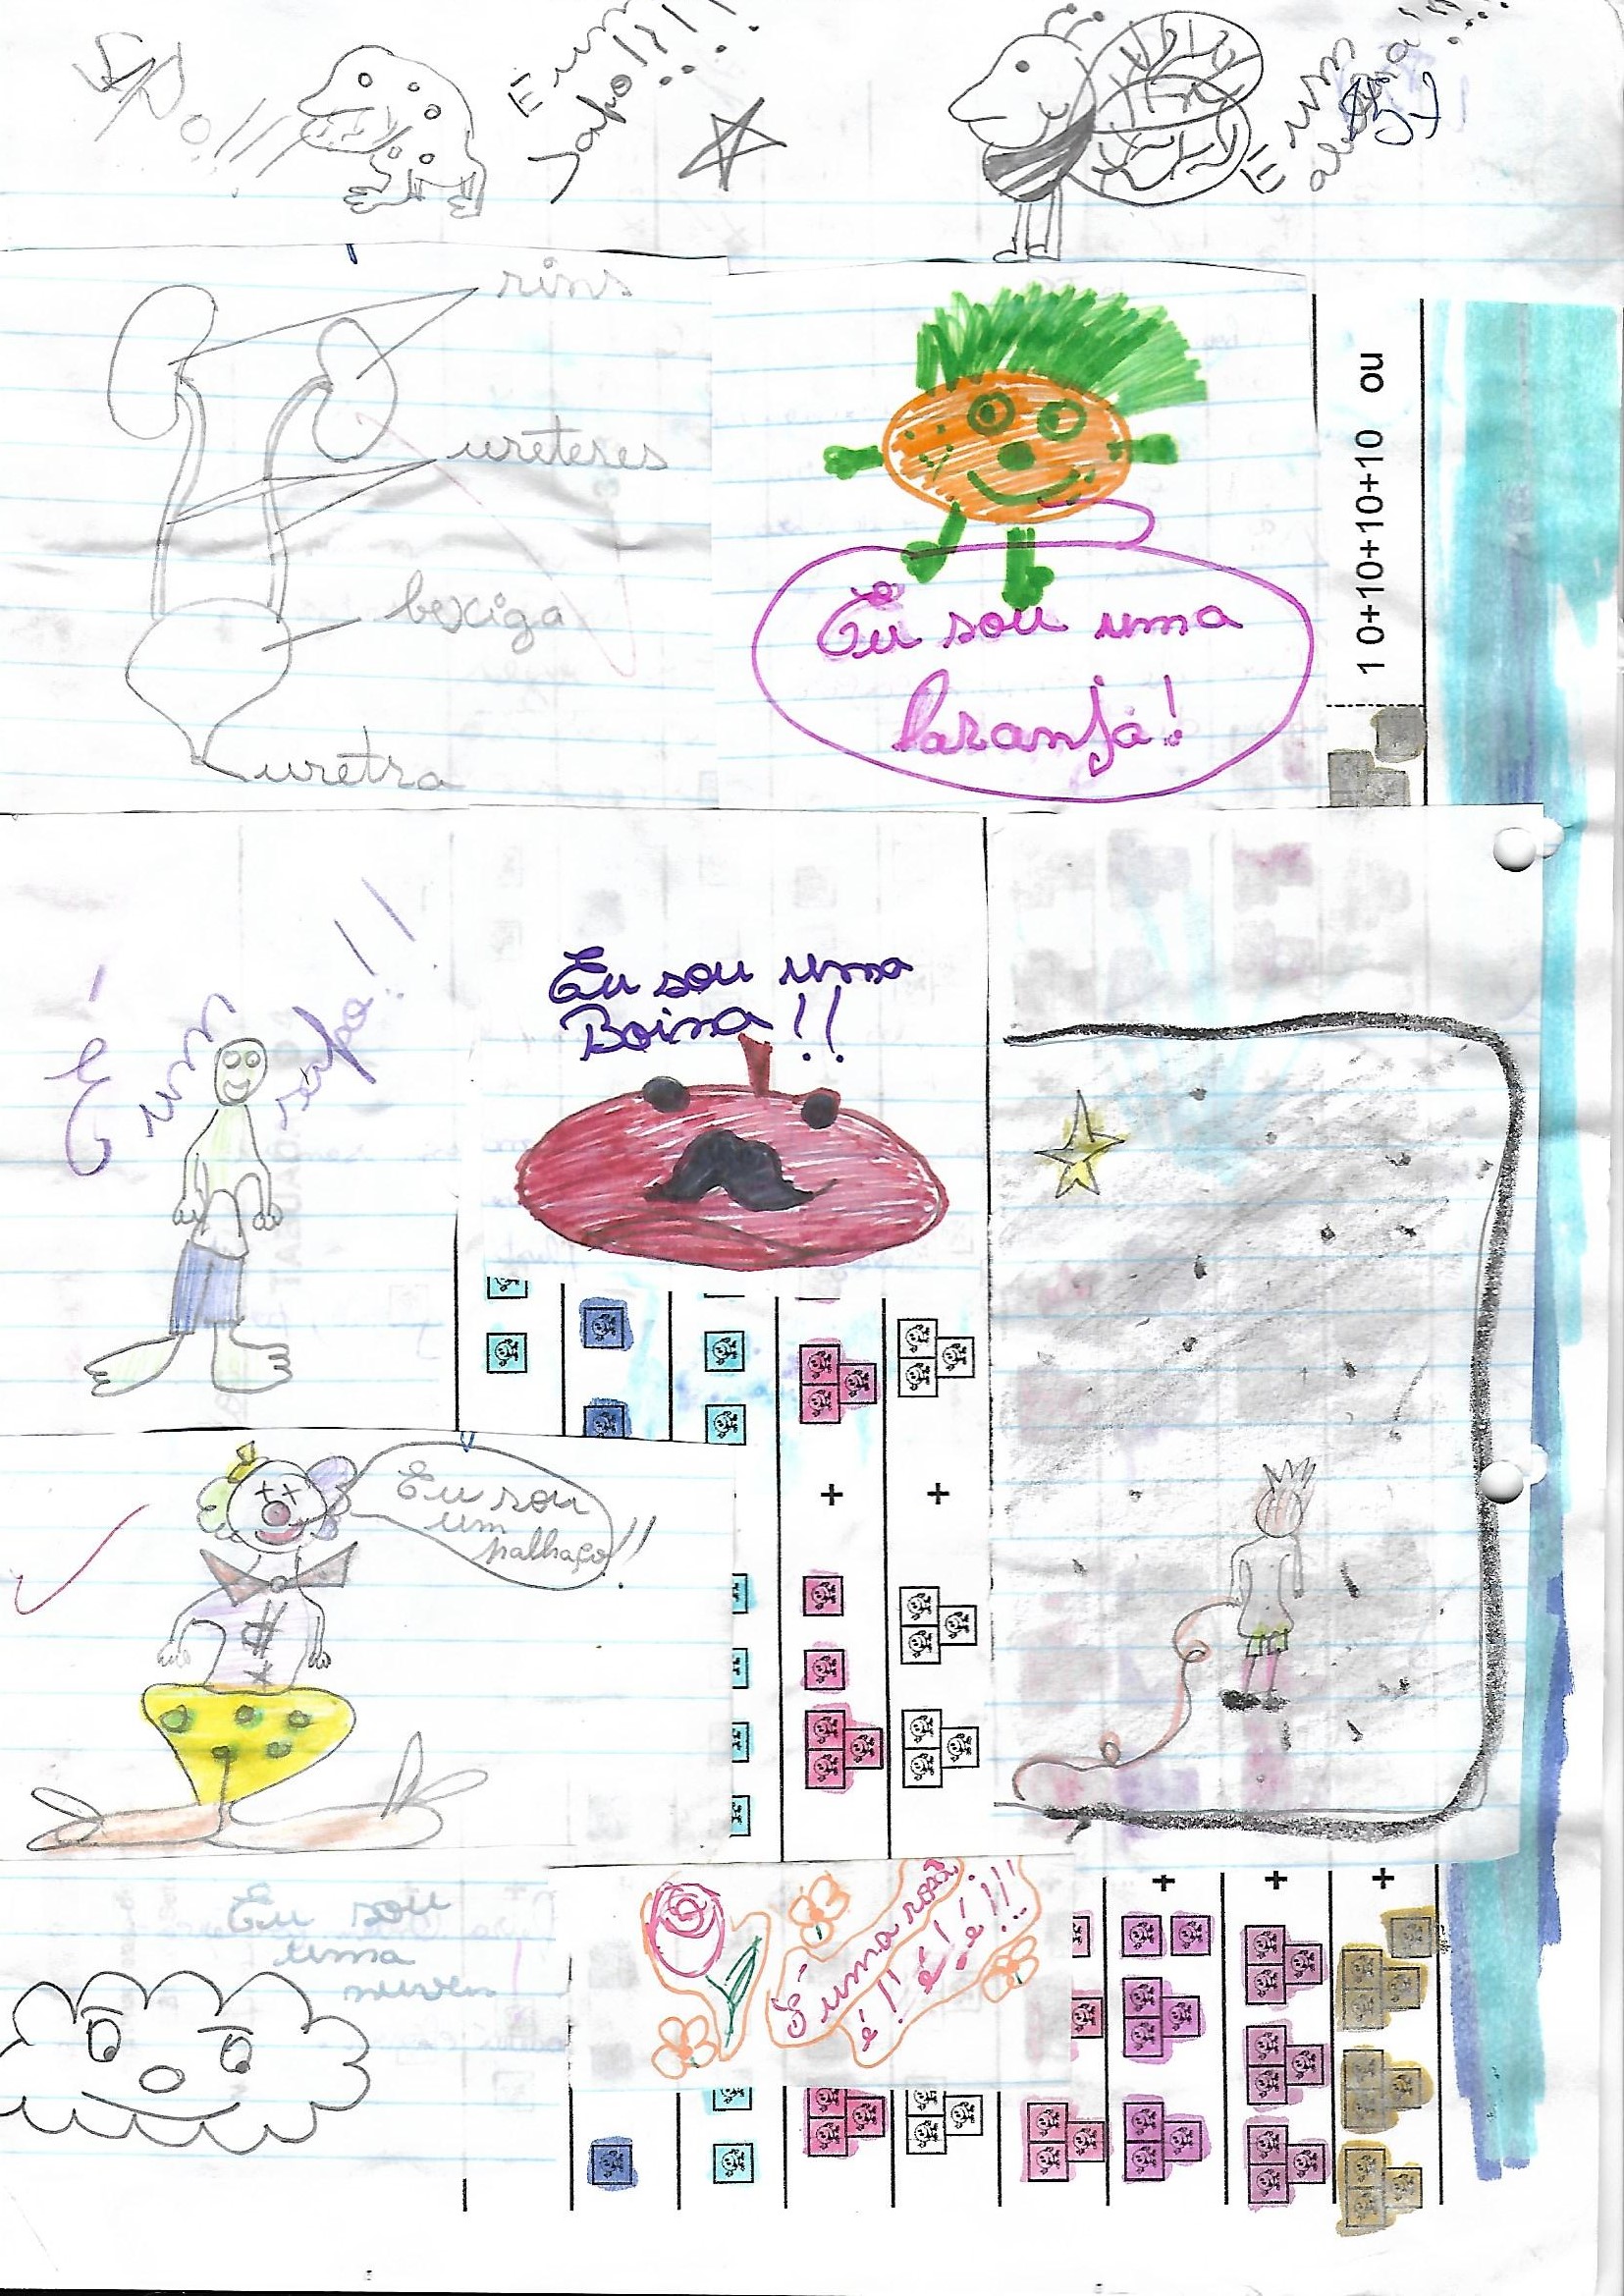 É um
sapo!?!!...
É um
rins
ureteres
bexiga
uretra
Eu sou uma
laranja!
10+10+10+10 ou
É um
sapo!!
Eu sou uma
Boina!!
Eu sou
um
palhaço!!
Eu sou
uma
nuvem
É uma rosa!
é!! é! é!!!
+
+
+
+
+